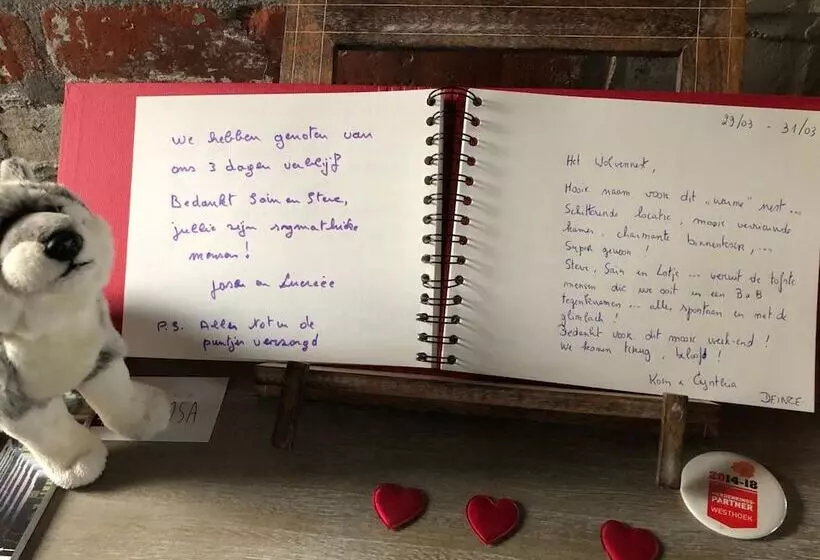 We hebben genoten van
ons 3 dagen verblijf
Bedankt Sain en Steve,
jullie zijn
mensen!
Josen en Lucrèce
P.S. Alles tot in de
puntjes verzorgd
29/03 - 31/03
Het Wolvennest,
Mooie naam voor dit "warme" nest...
Schitterende locatie, mooie vernieuwde
kamer, charmante binnenkoer,...
Super gewoon!
Steve, Sain en Lotje ... veruit de tofste
mensen die we ooit in een B&B
tegenkwamen ... alles spontaan en met de
glimlach!
Bedankt voor dit mooie week-end!
We komen terug, beloofd!
Koen & Cynthia
DEINZE
2014-18
HERDENKINGS-
PARTNER
WESTHOEK